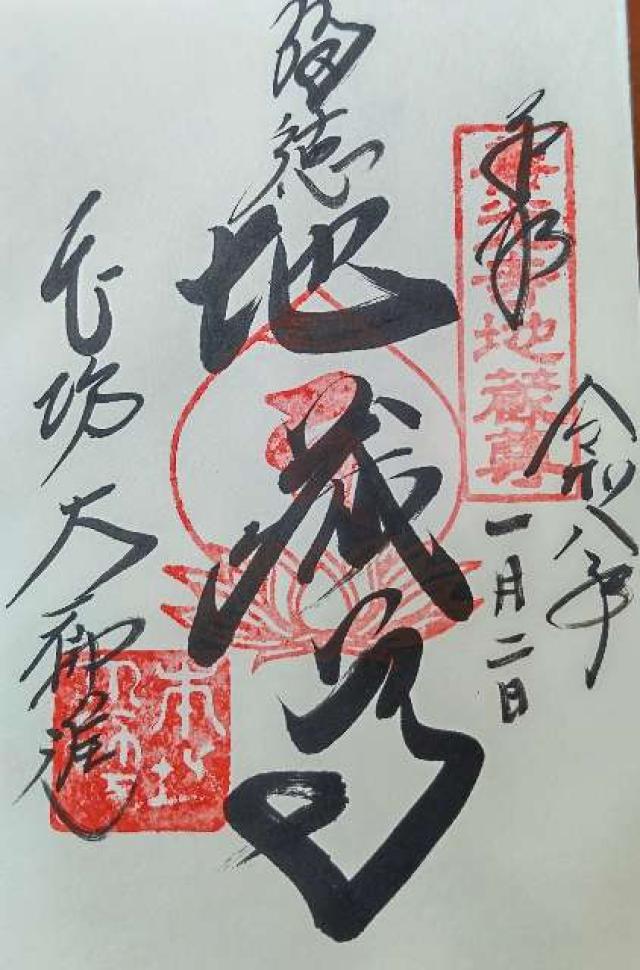 奉拝
善光寺地蔵尊
令和八年
一月二日
福徳
地蔵尊
本坊 大勧進